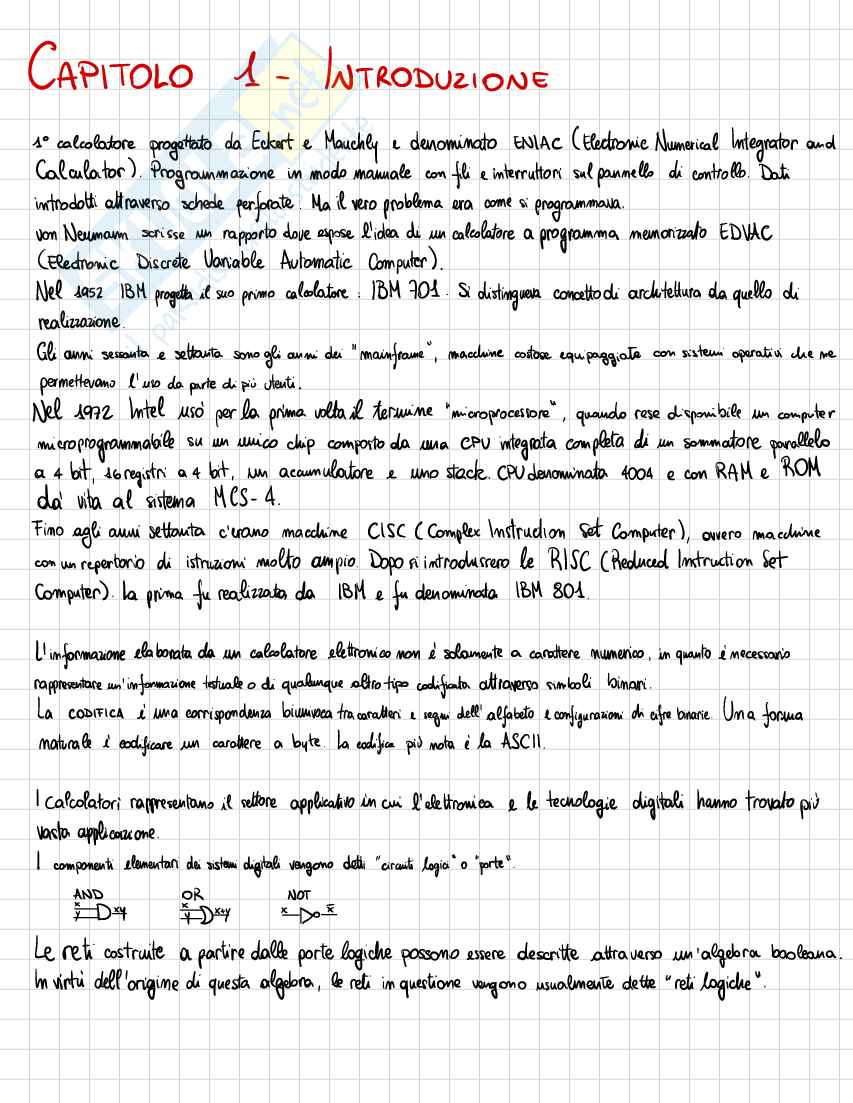 CAPITOLO 1 - INTRODUZIONE
1° calcolatore progettato da Eckert e Mauchly e denominato ENIAC (Electronic Numerical Integrator and
Calculator). Programmazione in modo manuale con fili e interruttori sul pannello di controllo. Dati
introdotti attraverso schede perforate. Ma il vero problema era come si programmava.
von Neumann scrisse un rapporto dove espose l'idea di un calcolatore a programma memorizzato EDVAC
(Electronic Discrete Variable Automatic Computer).
Nel 1952 IBM progetta il suo primo calcolatore: IBM 701. Si distingueva concetto di architettura da quello di
realizzazione.
Gli anni sessanta e settanta sono gli anni dei "mainframe", macchine costose equipaggiate con sistemi operativi che ne
permettevano l'uso da parte di più utenti.
Nel 1972 Intel usò per la prima volta il termine "microprocessore", quando rese disponibile un computer
microprogrammabile su un unico chip composto da una CPU integrata completa di un sommatore parallelo
a 4 bit, 16 registri a 4 bit, un accumulatore e uno stack. CPU denominata 4004 e con RAM e ROM
dà vita al sistema MCS-4.
Fino agli anni settanta c'erano macchine CISC (Complex Instruction Set Computer), ovvero macchine
con un repertorio di istruzioni molto ampio. Dopo si introdussero le RISC (Reduced Instruction Set
Computer). La prima fu realizzata da IBM e fu denominata IBM 801.
L'informazione elaborata da un calcolatore elettronico non è solamente a carattere numerico, in quanto è necessario
rappresentare un'informazione testuale o di qualunque altro tipo codificata attraverso simboli binari.
La CODIFICA è una corrispondenza biunivoca tra caratteri e segni dell'alfabeto e configurazioni di cifre binarie. Una forma
naturale è codificare un carattere a byte. La codifica più nota è la ASCII.
I calcolatori rappresentano il settore applicativo in cui l'elettronica e le tecnologie digitali hanno trovato più
vasta applicazione.
I componenti elementari dei sistemi digitali vengono detti "circuiti logici" o "porte".
AND OR NOT
x y xy x y x+y x x̅
Le reti costruite a partire dalle porte logiche possono essere descritte attraverso un'algebra booleana.
In virtù dell'origine di questa algebra, le reti in questione vengono usualmente dette "reti logiche".